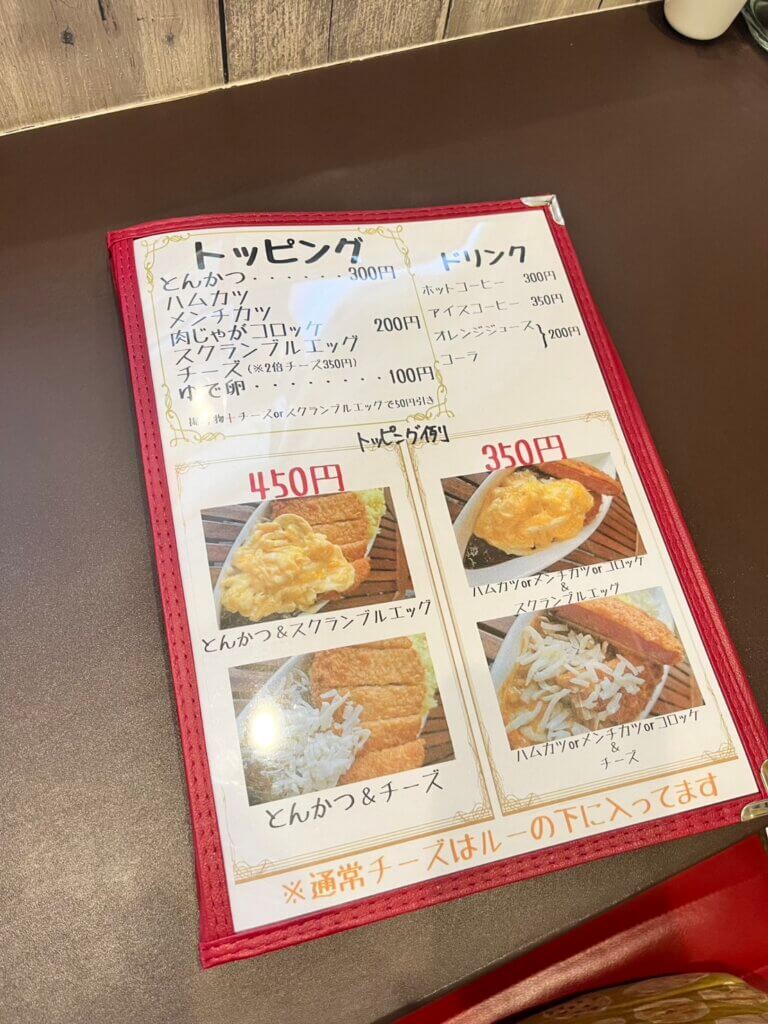 トッピング
とんかつ・・・・・・・300円
ハムカツ
メンチカツ
肉じゃがコロッケ 200円
スクランブルエッグ
チーズ(※2倍チーズ350円)
ゆで卵・・・・・・・・100円
物+チーズorスクランブルエッグで50円引き
ドリンク
ホットコーヒー 300円
アイスコーヒー 350円
オレンジジュース
コーラ } 200円
トッピング例
450円
とんかつ&スクランブルエッグ
とんかつ&チーズ
350円
ハムカツorメンチカツorコロッケ
&
スクランブルエッグ
ハムカツorメンチカツorコロッケ
&
チーズ
※通常チーズはルーの下に入ってます